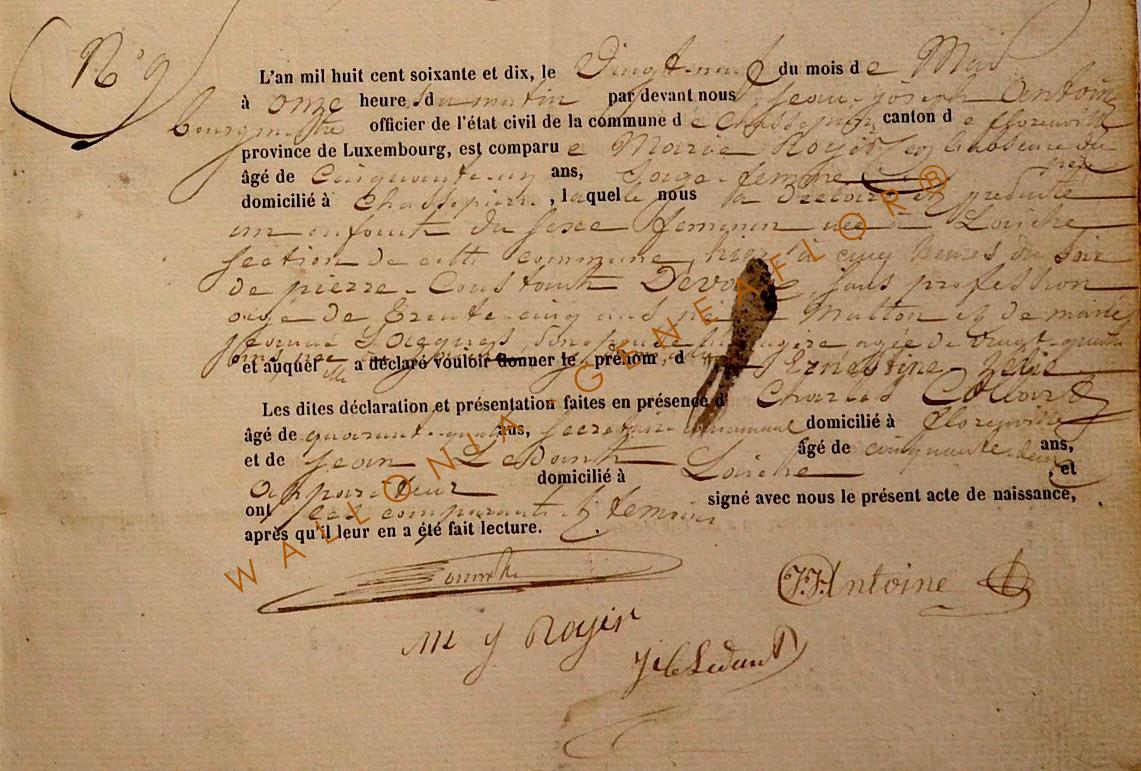 N° 9
L'an mil huit cent soixante et dix, le Vingt-neuf du mois de Mai
à onze heures du matin par devant nous Jean-joseph Antoine
bourgmestre officier de l'état civil de la commune de Chassepierre canton de florenville
province de Luxembourg, est comparue Marie Royer en l'absence du père
âgé de Cinquante-un ans, Sage-femme
domicilié à Chassepierre, laquelle nous a déclaré et présenté
un enfant du sexe féminin née à Laiche
section de cette commune, hier à cinq heures du soir
de pierre-Constant Devo sans profession
âgé de Trente-cinq ans Matton et de marie
jeanne Jacques, son épouse ménagère agée de vingt-quatre
ans et auquel elle a déclaré vouloir donner le prénom d Ernestine-Zélie
Les dites déclaration et présentation faites en présence d Charles Collard
âgé de quarante-quatre ans, secrétaire communal domicilié à florenville
et de jean Ledant âgé de cinquante-deux ans,
Appariteur domicilié à Laiche, et
ont les comparants & témoins signé avec nous le présent acte de naissance,
après qu'il leur en a été fait lecture.
J.J. Antoine
m j Royer
Ledant
WALLONIA-GENEAFLOR®